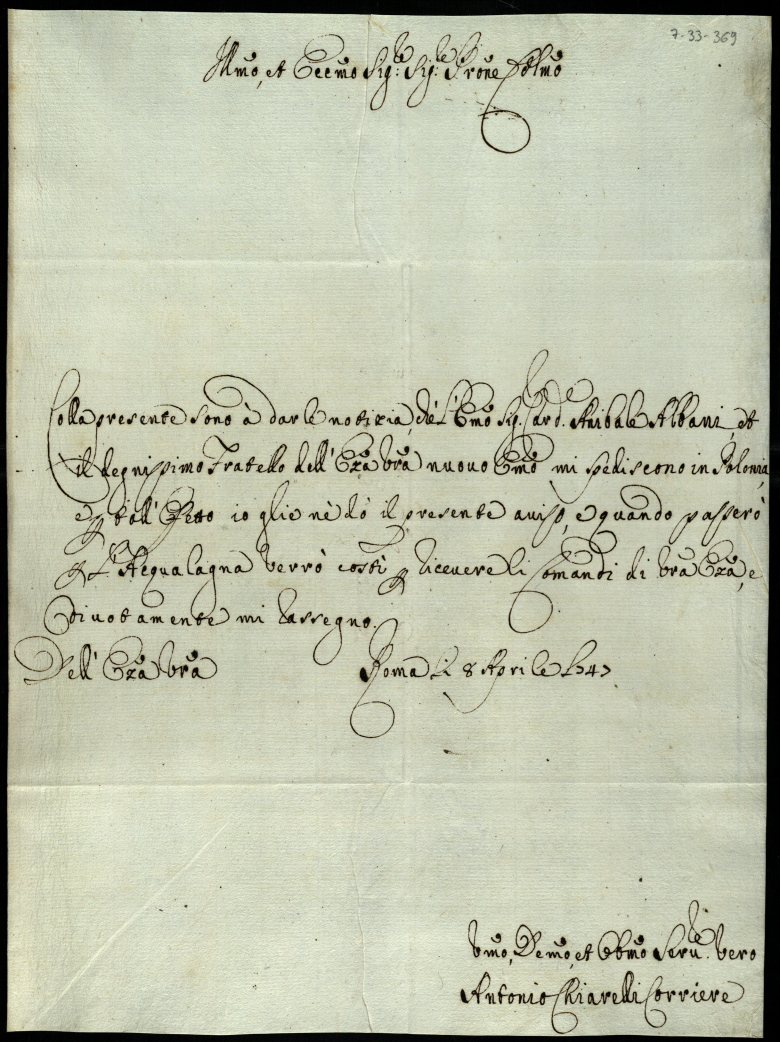 7-33-369
Illmo, et Eccmo Sig.re Sig.re Prone Colmo
Colla presente sono à dar le notizia, che l'Emo Sig. Card.le Anibale Albani, et
il degnissimo Fratello dell' Ecza Vra nuovo Emo mi spediscono in Polonia,
e p tal' io glie nè dò il presente aviso, e quando passerò
p l'Acqualagna verrò costì p ricevere li Comandi di Vra Ecza, e
divotamente mi rassegno.
Dell' Ecza Vra Roma li 8 Aprile 1747
Vmo, Demo, et Obmo Serv.re vero
Antonio Chiarelli Corriere